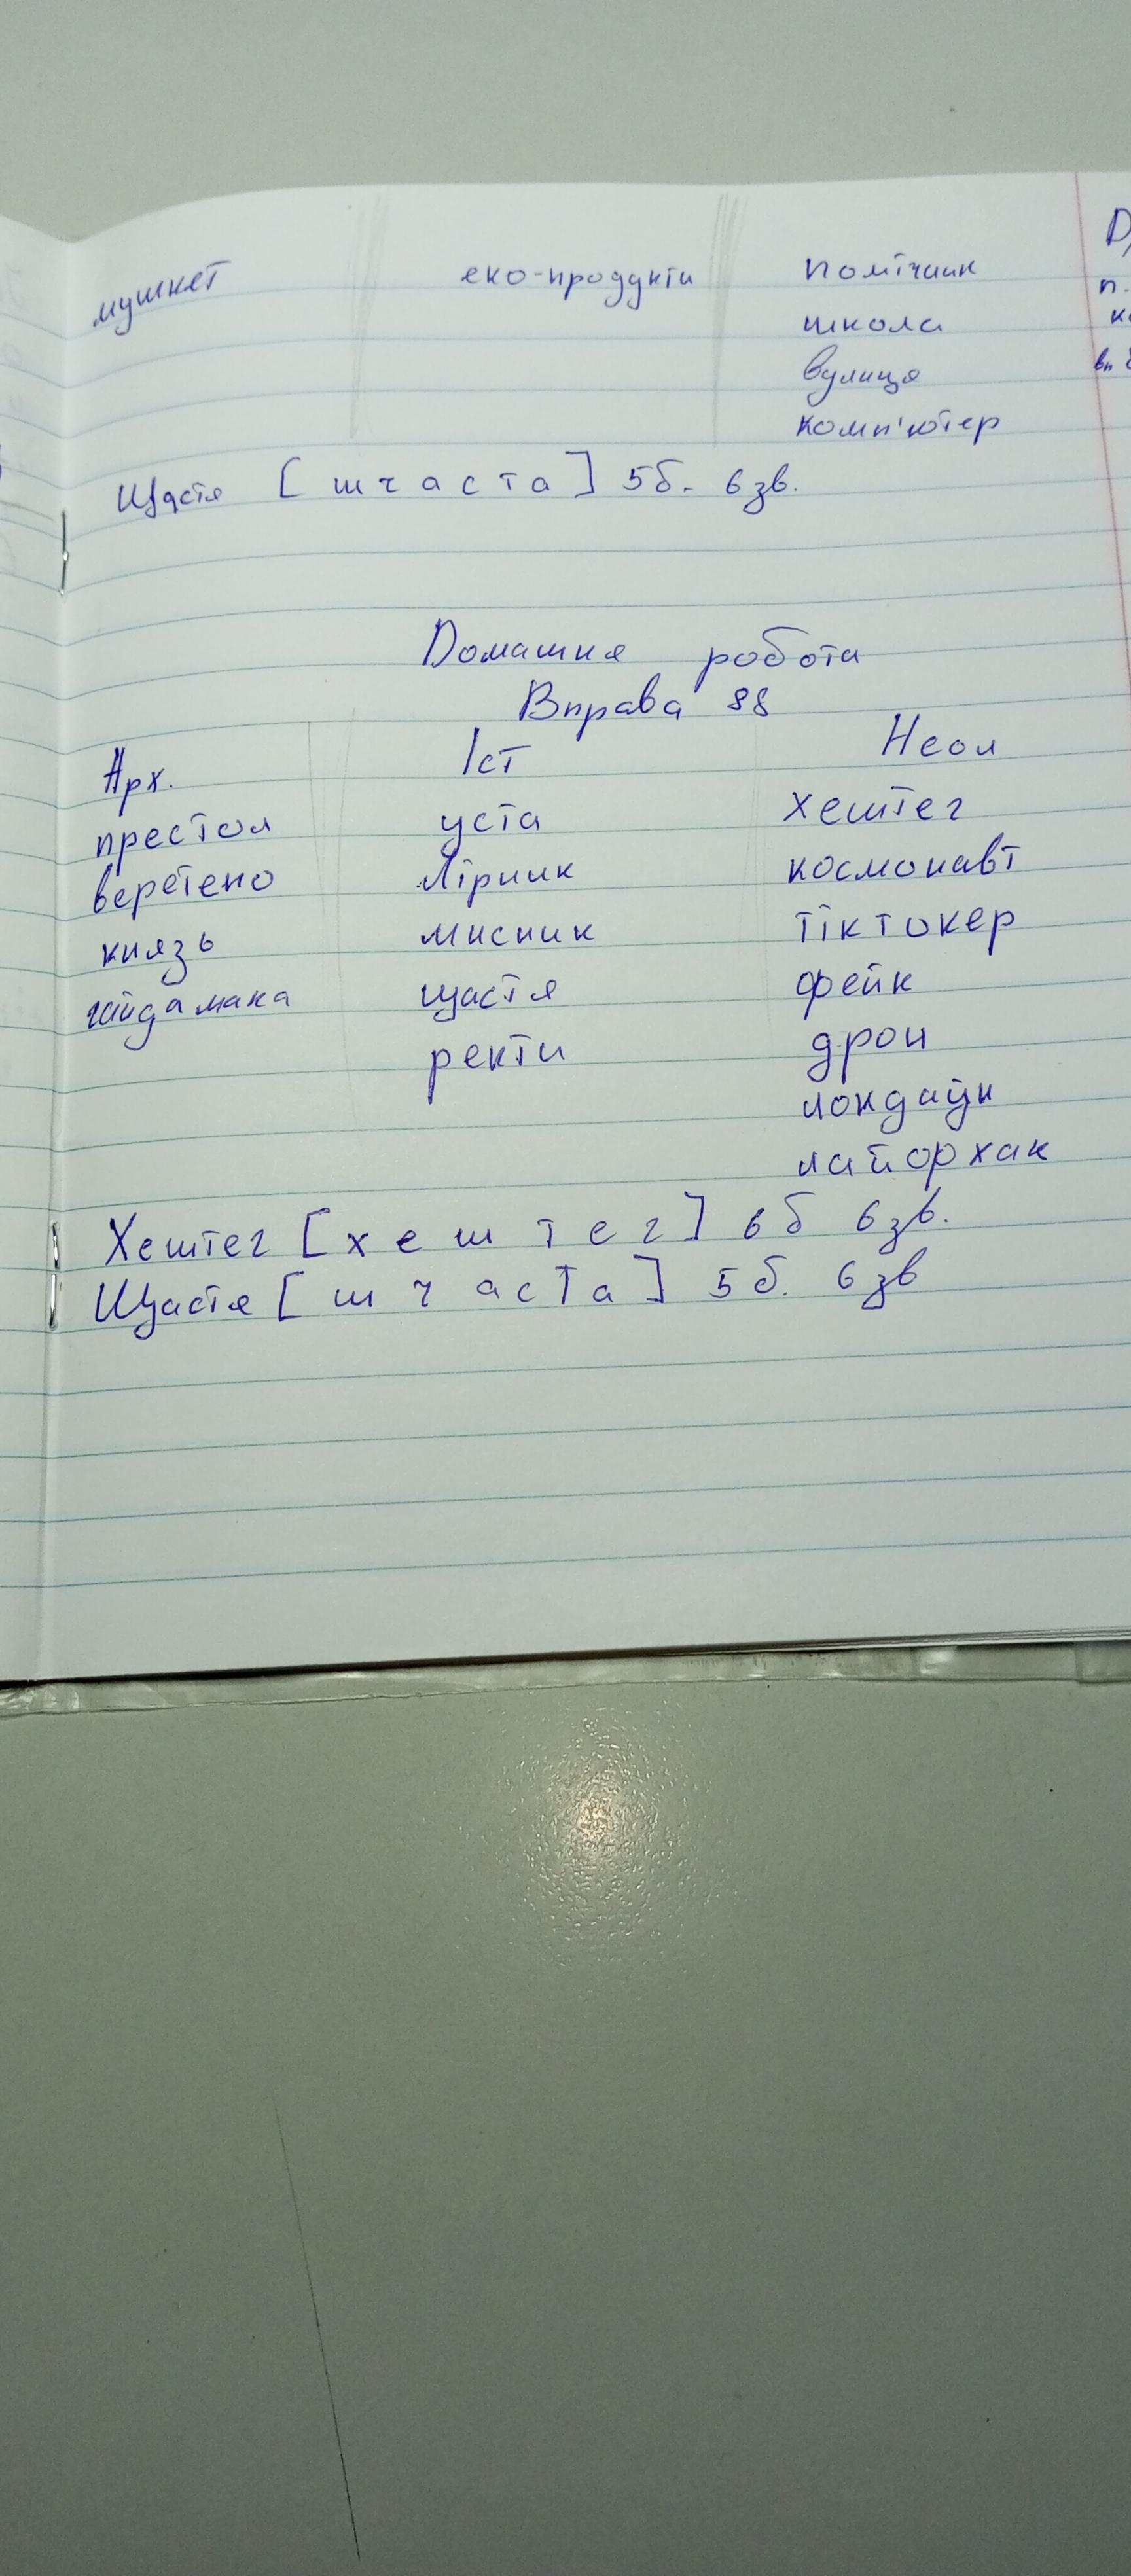 мушкет еко-продукти помічник
школа
вулиця
комп'ютер
Щастя [шчаста] 5б. 6зв.
Домашня робота
Вправа 88
Арх. Іст Неол
престол уста хештег
веретено лірник космонавт
князь мисник тіктокер
гайдамака щастя фейк
ректи дрон
локдаун
лайфхак
Хештег [х е ш т е г] 6б 6зв.
Щастя [ш ч а с т а] 5б. 6зв